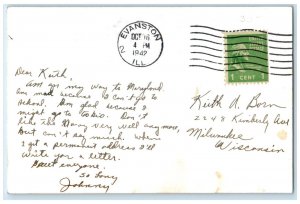 EVANSTON
OCT 16
4 PM
1942
ILL.
2
1 CENT 1
Dear Keith,
Am on my way to Maryland.
Am mad because I can't go to
school. Am glad because I
might go to Tokio. Don't
like the Navy very well any more,
But can't say much. When
I get a permanent address I'll
write you a letter.
Greet everyone.
So Long
Johnny
Keith A Born
2248 Kimberly
Milwaukee
Wisconsin